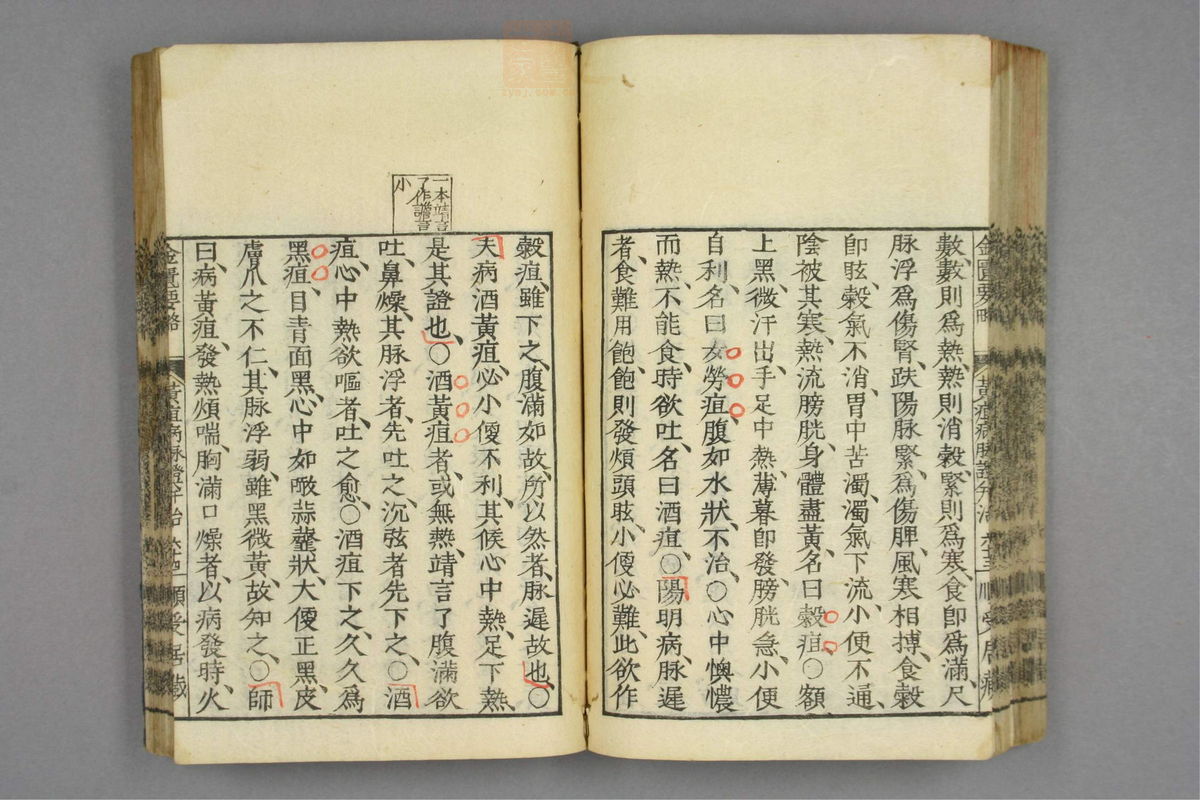 數數則爲熱熱則消穀緊則爲寒食卽爲滿尺
脉浮爲傷腎趺陽脉緊爲傷脾風寒相搏食穀
卽眩穀氣不消胃中苦濁濁氣下流小便不通
陰被其寒熱流膀胱身體盡黃名曰穀疸○額
上黑微汗出手足中熱薄暮卽發膀胱急小便
自利名曰女勞疸腹如水狀不治○心中懊憹
而熱不能食時欲吐名曰酒疸○陽明病脉遲
者食難用飽飽則發煩頭眩小便必難此欲作
穀疸雖下之腹滿如故所以然者脉遲故也○
夫病酒黃疸必小便不利其候心中熱足下熱
是其證也○酒黃疸者或無熱靖言了腹滿欲
吐鼻燥其脉浮者先吐之沉弦者先下之○酒
疸心中熱欲嘔者吐之愈○酒疸下之久久爲
黑疸目青面黑心中如噉蒜虀狀大便正黑皮
膚爪之不仁其脉浮弱雖黑微黃故知之○師
曰病黃疸發熱煩喘胸滿口燥者以病發時火
一本靖言
了作譫言
小
金匱要略
黃疸病脉證并治
順受居藏